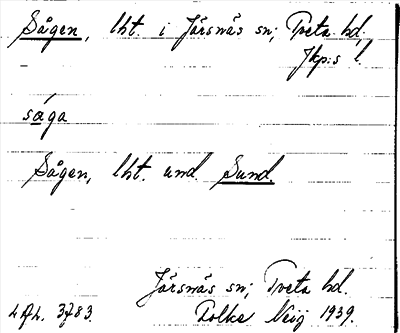 Sågen, lht. i Järsnäs sn; Tveta hd.
Jkp:s l.
såga
Sågen, lht. und. Sund.
Järsnäs sn; Tveta hd.
Folke 1939.